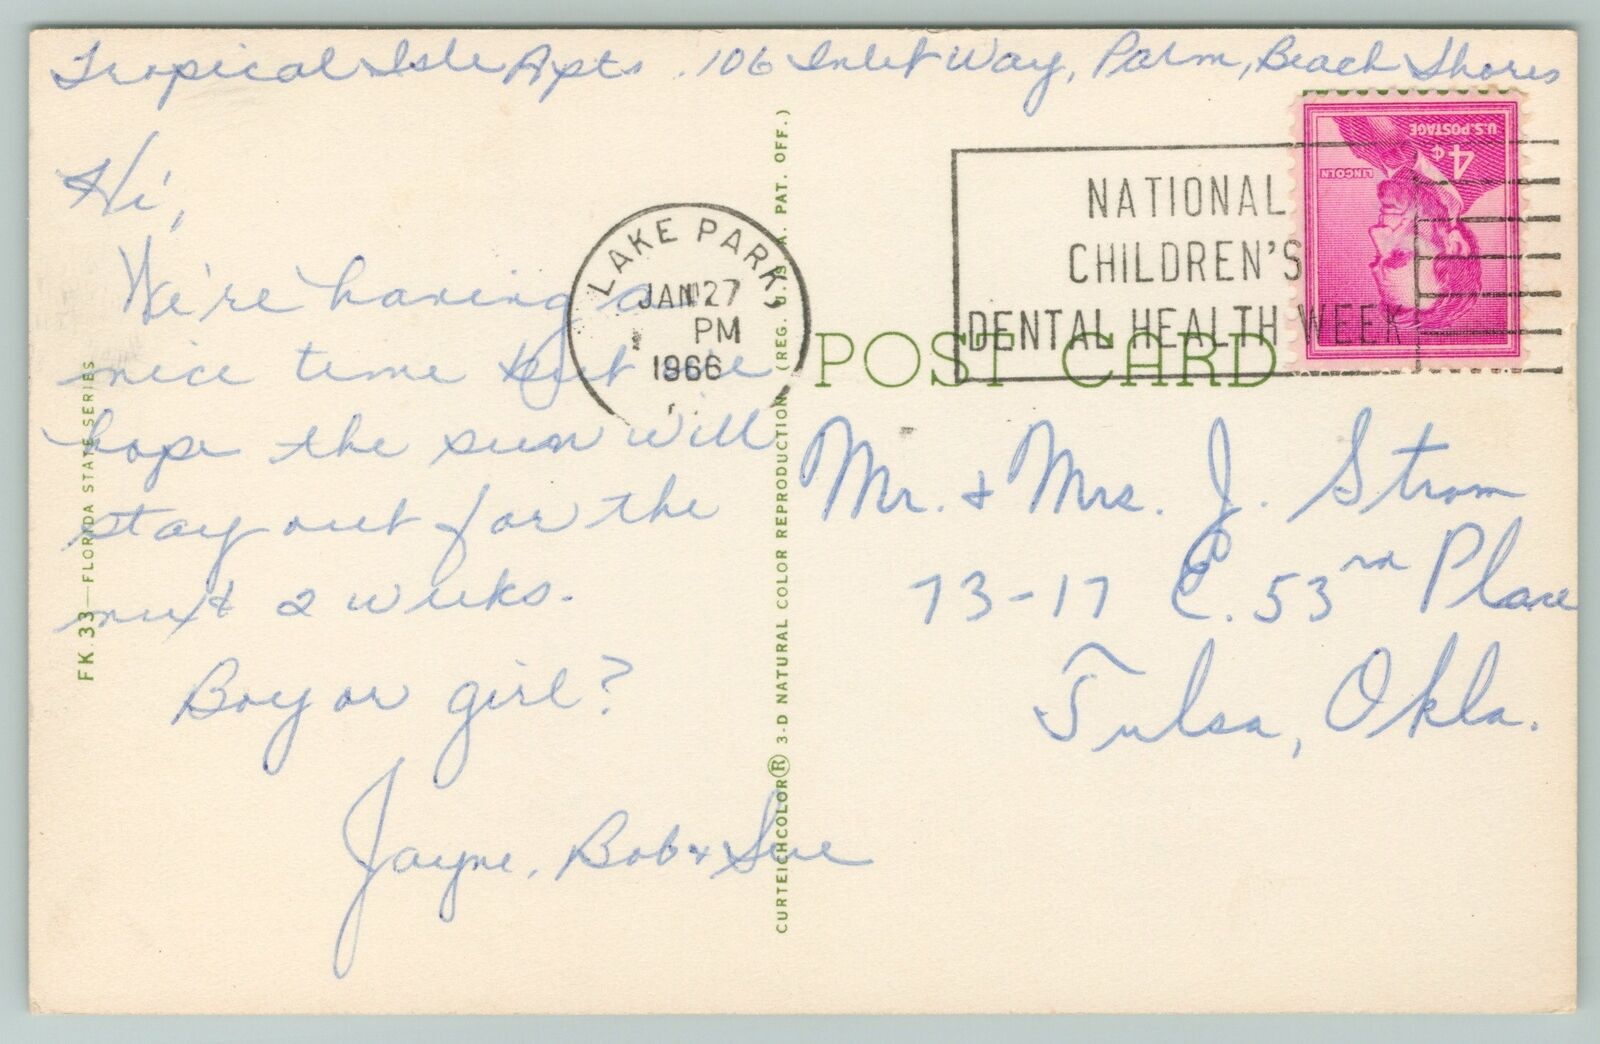 Tropical Isle Apts. 106 Inlet Way, Palm, Beach Shores
Hi,
We're having a
nice time but we
hope the sun will
stay out for the
next 2 weeks.
Boy or girl?
Jayne, Bob & Sue
FK.33—FLORIDA STATE SERIES
CURTEICHCOLOR® 3-D NATURAL COLOR REPRODUCTION (REG. U.S.A. PAT. OFF.)
LAKE PARK,
JAN 27
PM
1966
NATIONAL
CHILDREN'S
DENTAL HEALTH WEEK
U.S. POSTAGE
4¢
LINCOLN
POST CARD
Mr. & Mrs. J. Strom
73-17 E. 53rd Place
Tulsa, Okla.